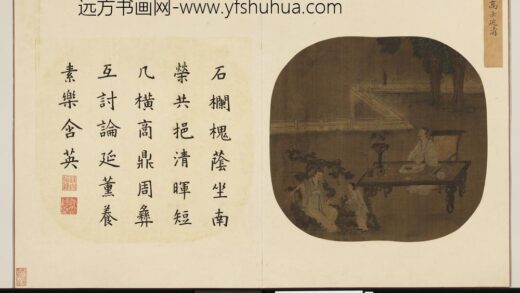 远方书画网-www.yfshuhua.com
石欄槐蔭坐南
榮共挹清暉短
几橫高鼎周彝
互討論延薰養
素樂含英